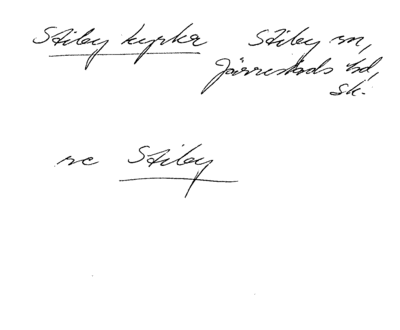 Stiby kyrka Stiby sn,
Järrestads hd,
Sk.
se Stiby